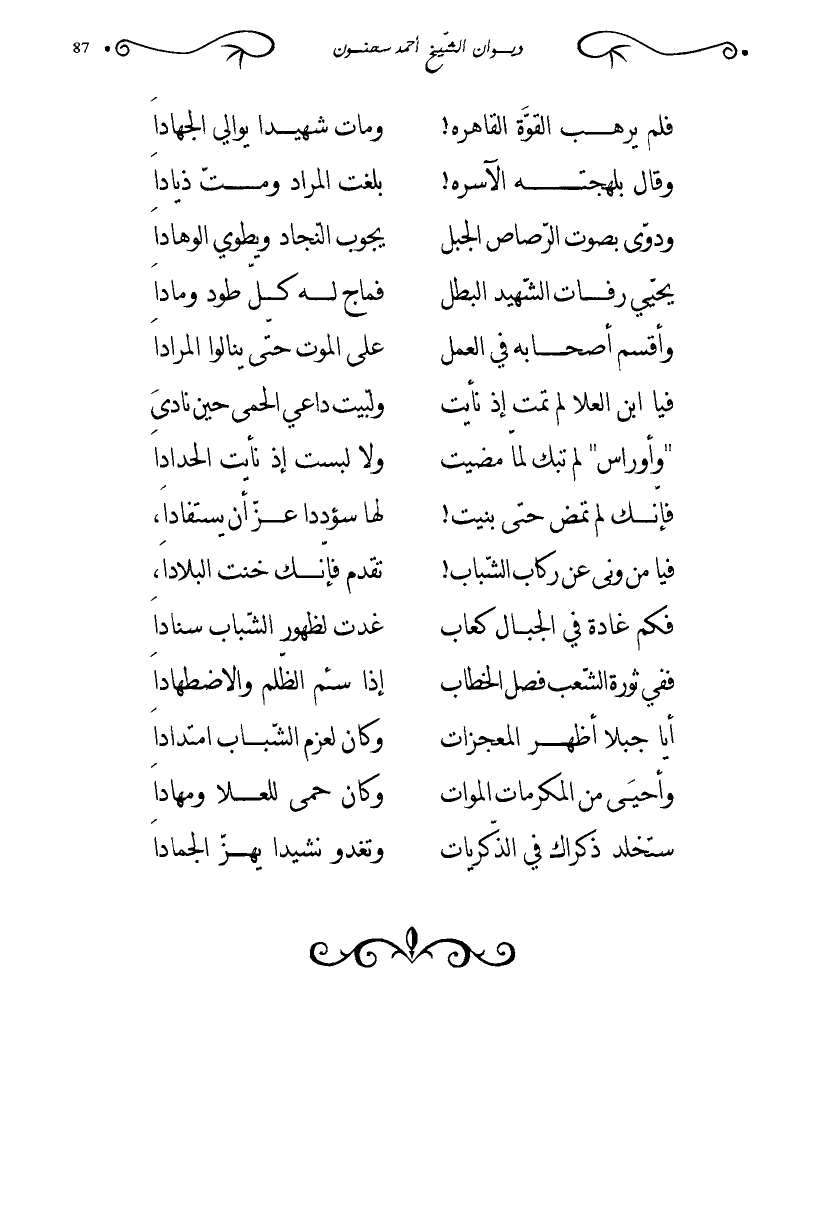 ديوان الشّيخ أحمد سحنون 87
فلم يرهب القوّة القاهره! ومات شهيدا يوالي الجهادا
وقال بلهجته الآسره! بلغت المراد ومتّ ذيادا
ودوّى بصوت الرّصاص الجبل يجوب النّجاد ويطوي الوهادا
يحيّي رفات الشّهيد البطل فماج له كلّ طود ومادا
وأقسم أصحابه في العمل على الموت حتّى ينالوا المرادا
فيا ابن العلا لم تمت إذ نأيت ولبّيت داعي الحمى حين نادىَ
"وأوراس" لم تبك لمّا مضيت ولا لبست إذ نأيت الحدادا
فإنّك لم تمض حتى بنيت! لها سؤددا عزّ أن يستفادا،
فيا من ونى عن ركاب الشّباب! تقدم فإنّك خنت البلادا،
فكم غادة في الجبال كعاب غدت لظهور الشّباب سنادا
ففي ثورة الشّعب فصل الخطاب إذا سئم الظّلم والاضطهادا
أيا جبلا أظهر المعجزات وكان لعزم الشّباب امتدادا
وأحيَى من المكرمات الموات وكان حمى للعلا ومهادا
ستخلد ذكراك في الذّكريات وتغدو نشيدا يهزّ الجمادا